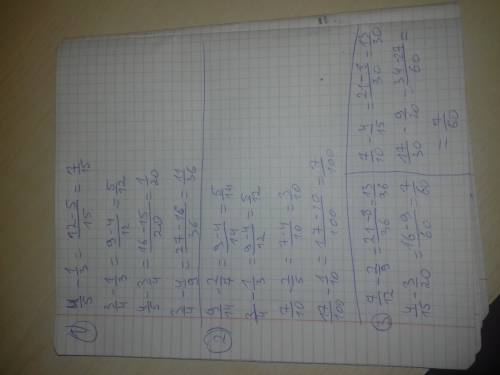 1)
4/5 - 1/3 = 12-5/15 = 7/15
3/4 - 1/3 = 9-4/12 = 5/12
4/5 - 3/4 = 16-15/20 = 1/20
3/4 - 4/9 = 27-16/36 = 11/36
2)
9/14 - 2/7 = 9-4/14 = 5/14
3/4 - 1/3 = 9-4/12 = 5/12
7/10 - 2/5 = 7-4/10 = 3/10
17/100 - 1/10 = 17-10/100 = 7/100
3)
7/12 - 2/9 = 21-8/36 = 13/36
4/15 - 3/20 = 16-9/60 = 7/60
7/10 - 4/15 = 21-8/30 = 13/30
17/30 - 9/20 = 34-27/60 =
= 7/60